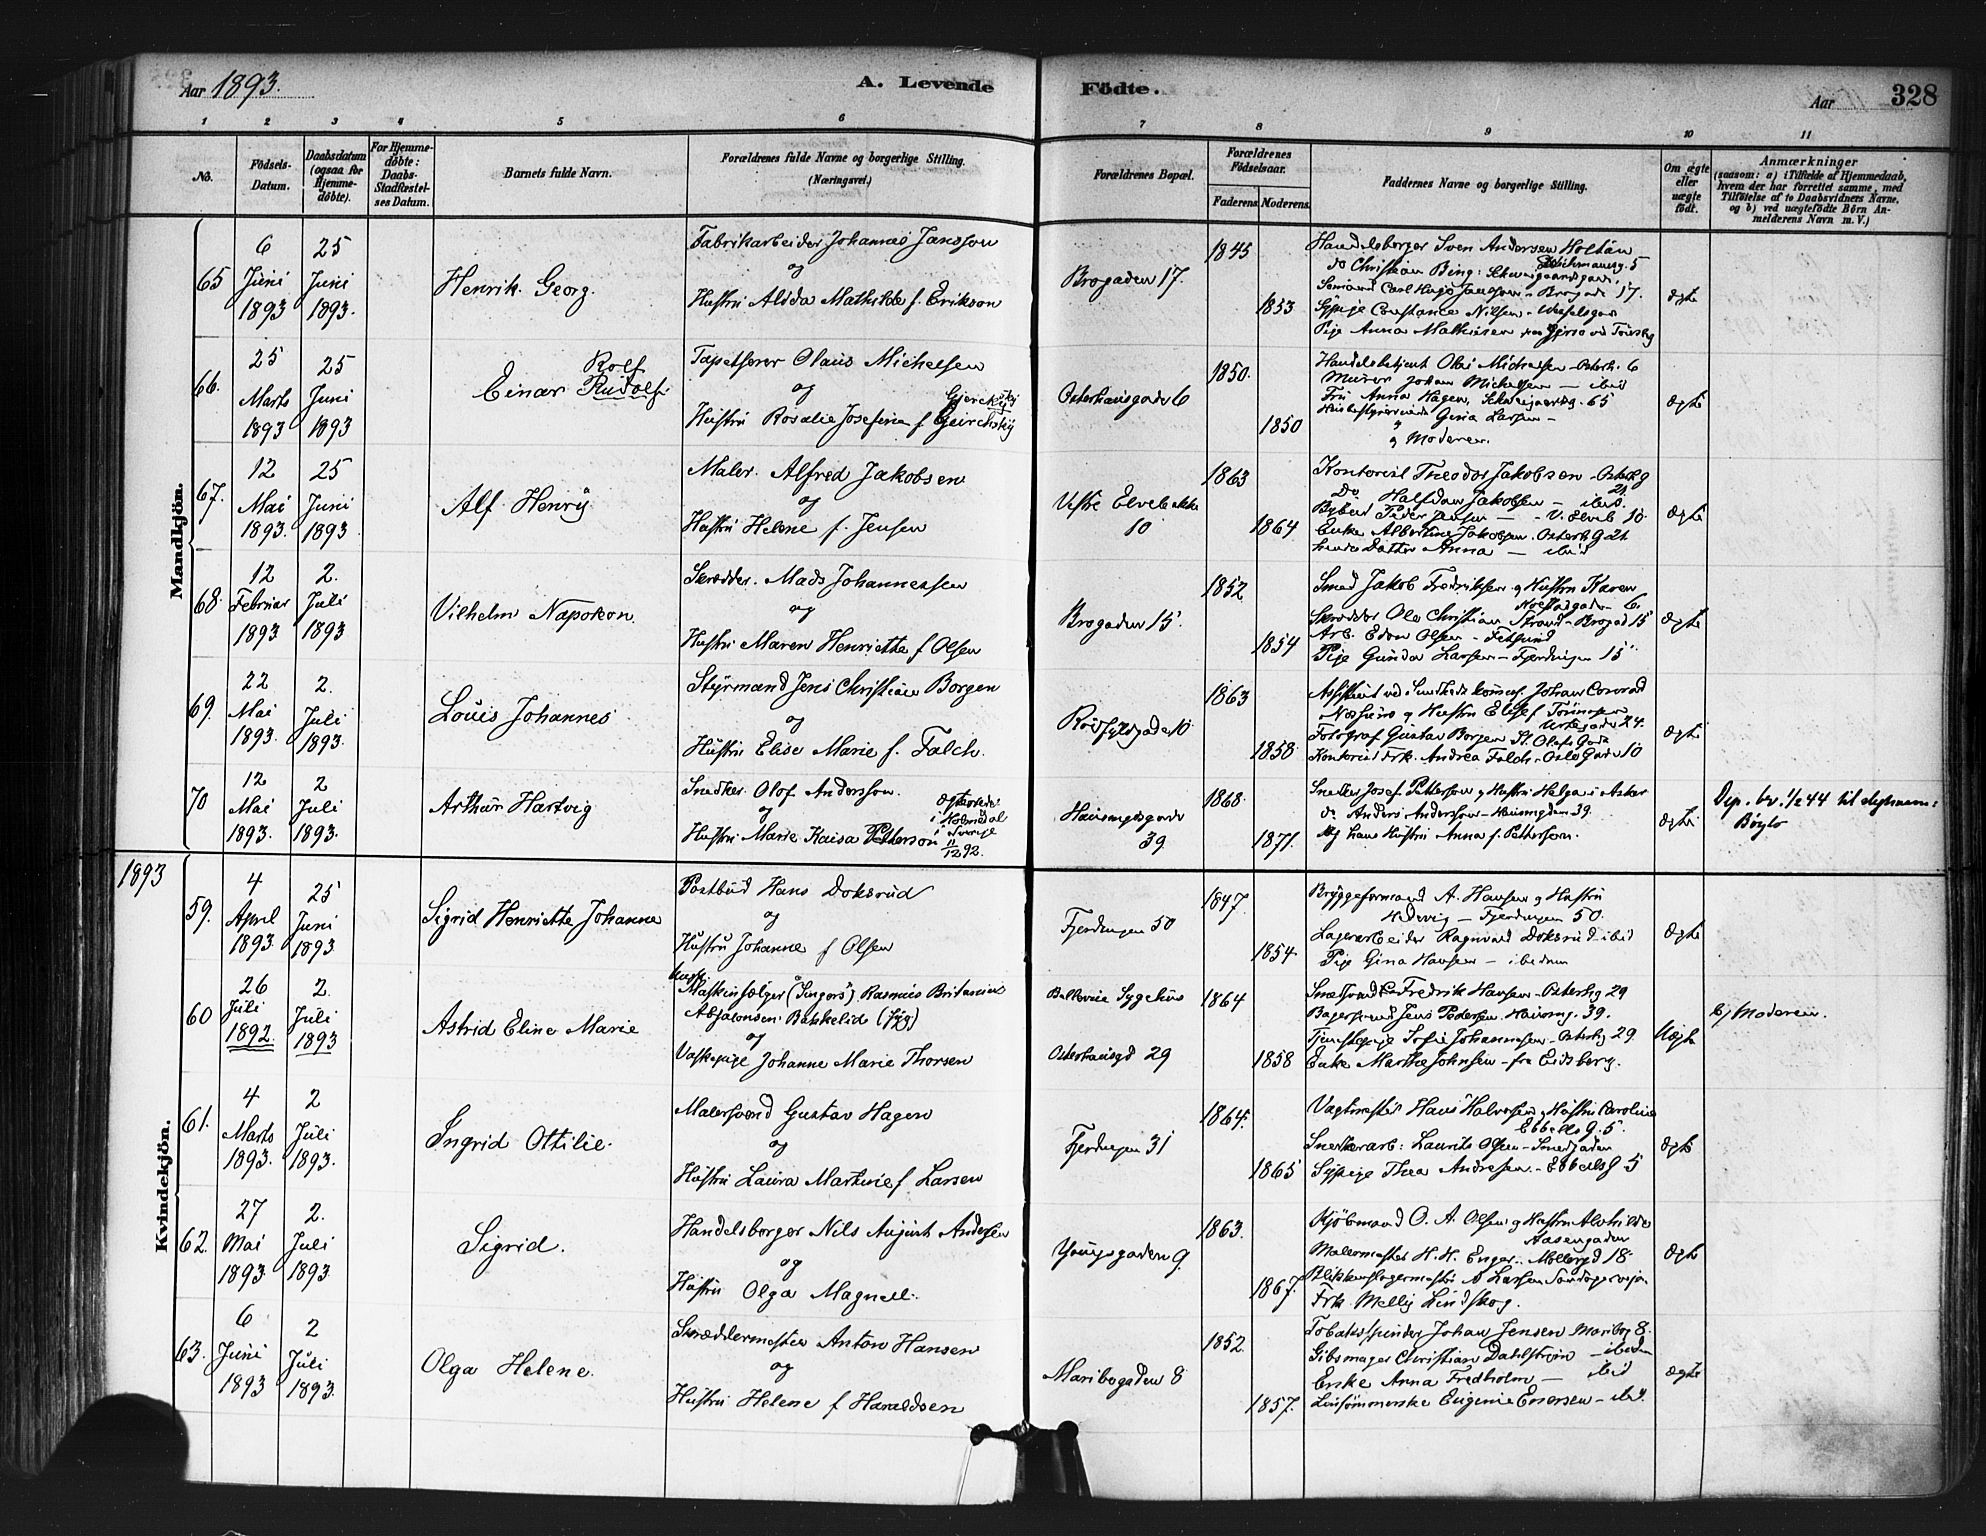 Aar 1893.
A. Levende Födte.
Aar
328
1 2 3 4 5 6 7 8 9 10 11
No.
Födsels-Datum.
Daabsdatum (ogsaa for Hjemme-döbte).
For Hjemme-döbte: Daabs-Stadfæstel-ses Datum.
Barnets fulde Navn.
Forældrenes fulde Navne og borgerlige Stilling.
(Næringsvei.)
Forældrenes Bopæl.
Forældrenes Födselsaar.
Faderens. Moderens.
Faddernes Navne og borgerlige Stilling.
Om ægte eller uægte födt.
Anmærkninger
(saasom: a) i Tilfælde af Hjemmedaab, hvem der har forrettet samme, med Tilföielse af to Daabsvidners Navne, og b) ved uægtefödte Börn An-melderens Navn m. V.)
Mandkjön.
65
6 Juni 1893
25 Juni 1893.
Henrik Georg.
Fabrikarbeider Johannes Jansson
og
Hustru Alida Mathilde f. Erikson
Brogaden 17.
1845
1853
Handelsborger Sven Andersen Holtan
do Christian Bing: Schweigaardsgade,
Sömand Carl Hugo Jansson - Brogade 17.
Sypige Constance Nilsen
Pige Anna Mathisen
ægte
66.
25 Marts 1893
25 Juni 1893
Rolf
Einar Rudolf
Tapetserer Olaus Michelsen
og
Hustru Rosalie Josefine f
Osterhausgade 6
1850.
1850
Handelsbetjent Olai Michaelsen - Osterh. 6
Murer Johan Michelsen - ibid
Fru Anna Hagen, Schweigaardsg. 65
Gina Larsen -
og Moderen.
Ægte
67.
12 Mai 1893.
25 Juni 1893
Alf Henry
Maler. Alfred Jakobsen
og
Hustru Helene f. Jensen
Vestre Elvebakke 10
1863
1864
Kontorist Theodor Jakobsen - Osterh g 21
Do Halfdan Jakobsen - ibid.
Bybud Peder Jensen - V. Elveb 10
Enke Albertine Jakobsen Osterh g 21
hendes Datter Anna - ibid
Ægte
68.
12 Februar 1893
2. Juli 1893
Vilhelm Napoleon.
Skrædder. Mads Johannessen
og
Hustru Maren Henriette f Olsen
Brogaden 15.
1852
1854
Smed Jakob Fredriksen og Hustru Karen
6
Skrædder Ole Christian Strand - Brogad 15
Arb. Edon Olsen - Fetsund
Pige Gunda Larsen - Fjerdingen 15
Ægte
69.
22 Mai 1893.
2. Juli 1893.
Louis Johannes
Styrmand Jens Christian Borgen
og
Hustru Elise Marie f. Falch.
Rödfyldgade 10
1863
1858
Assistent ved Sundhedskommis. Johan Conrad
og Hustru Elise f
Urtegaden 24.
Fotograf Gustav Borgen St. Olafs Gade
Kontorist Frk. Andrea Falch - Oslo Gade 10
Ægte
70
12 Mai 1893.
2 Juli 1893.
Arthur Hartvig
Snedker. Olof Andersson.
og
Hustru Marie Kaisa Petterson
i Sverige 11/12 92.
Hausmansgade 39.
1868.
1871.
Snedker Josef Petterson og Hustru Helga i Asker
do Anders Andersson - Hausmgden 39.
og hans Hustru Anna f. Petterson.
Ægte
Dep. br. 1/2 44 til
1893
Kvindekjön.
59.
4 April 1893
25 Juni 1893
Sigrid Henriette Johanne
Postbud Hans Doksrud
og
Hustru Johanne f Olsen
Fjerdingen 50
1847.
1854
Bryggeformand A. Hansen og Hustru
Hedevig - Fjerdingen 50.
Lagerarbeider Ragnvald Doksrud ibid
Pige Gina Hansen - ibidem
Ægte
60
26 Juli 1892.
2. Juli 1893
Astrid Eline Marie
Maskinsælger (Singers) Rasmus Britanius
Absalonsen Bakkelid (Syg)
og
Vaskepige Johanne Marie Thorsen
Sygehus
Osterhausgd 29
1864
1858
Fredrik Hansen - Osterhg 29
Bagersvend Jens Pedersen. Hausmg. 39.
Tjenstepige Sofie Johannesen - Osterhg 29
Enke Marthe Johnsen - fra Eidsberg.
Uægte
Ej Moderen.
61.
4 Marts 1893.
2 Juli 1893.
Ingrid Ottilie.
Malersvend Gustav Hagen
og
Hustru Laura Martine f Larsen
Fjerdingen 31
1864.
1865
Vagtmester Hans Halvorsen og Hustru Caroline
Ebbells g. 5.
Snedkerarb: Laurits Olsen - Smedgaden
Sypige Thea Andresen - Ebbellsg 5
Ægte
62.
27 Mai 1893
2. Juli 1893.
Sigrid.
Handelsborger Nils August Andersen
og
Hustru Olga Magnell.
Youngsgaden 9.
1863.
1867.
Kjöbmand O. A. Olsen og Hustru Alvhilde
Aasengaden
Malermester H. H. Enger. Möllergd 18
Blikkenslagermester A Larsen
Frk. Melly Lindskog.
Ægte
63.
6 Juni 1893
2 Juli 1893.
Olga Helene.
Skræddermester Anton Hansen
og
Hustru Helene f Haraldsen
Maribogaden 8
1852.
1857.
Tobaksspinder Johan Jensen Maribog 8.
Gibsmager Christian Dahlström - ibidem
Enke Anna Fredholm - ibid
Linsömmerske Eugenie Enersen - ibid.
Ægte